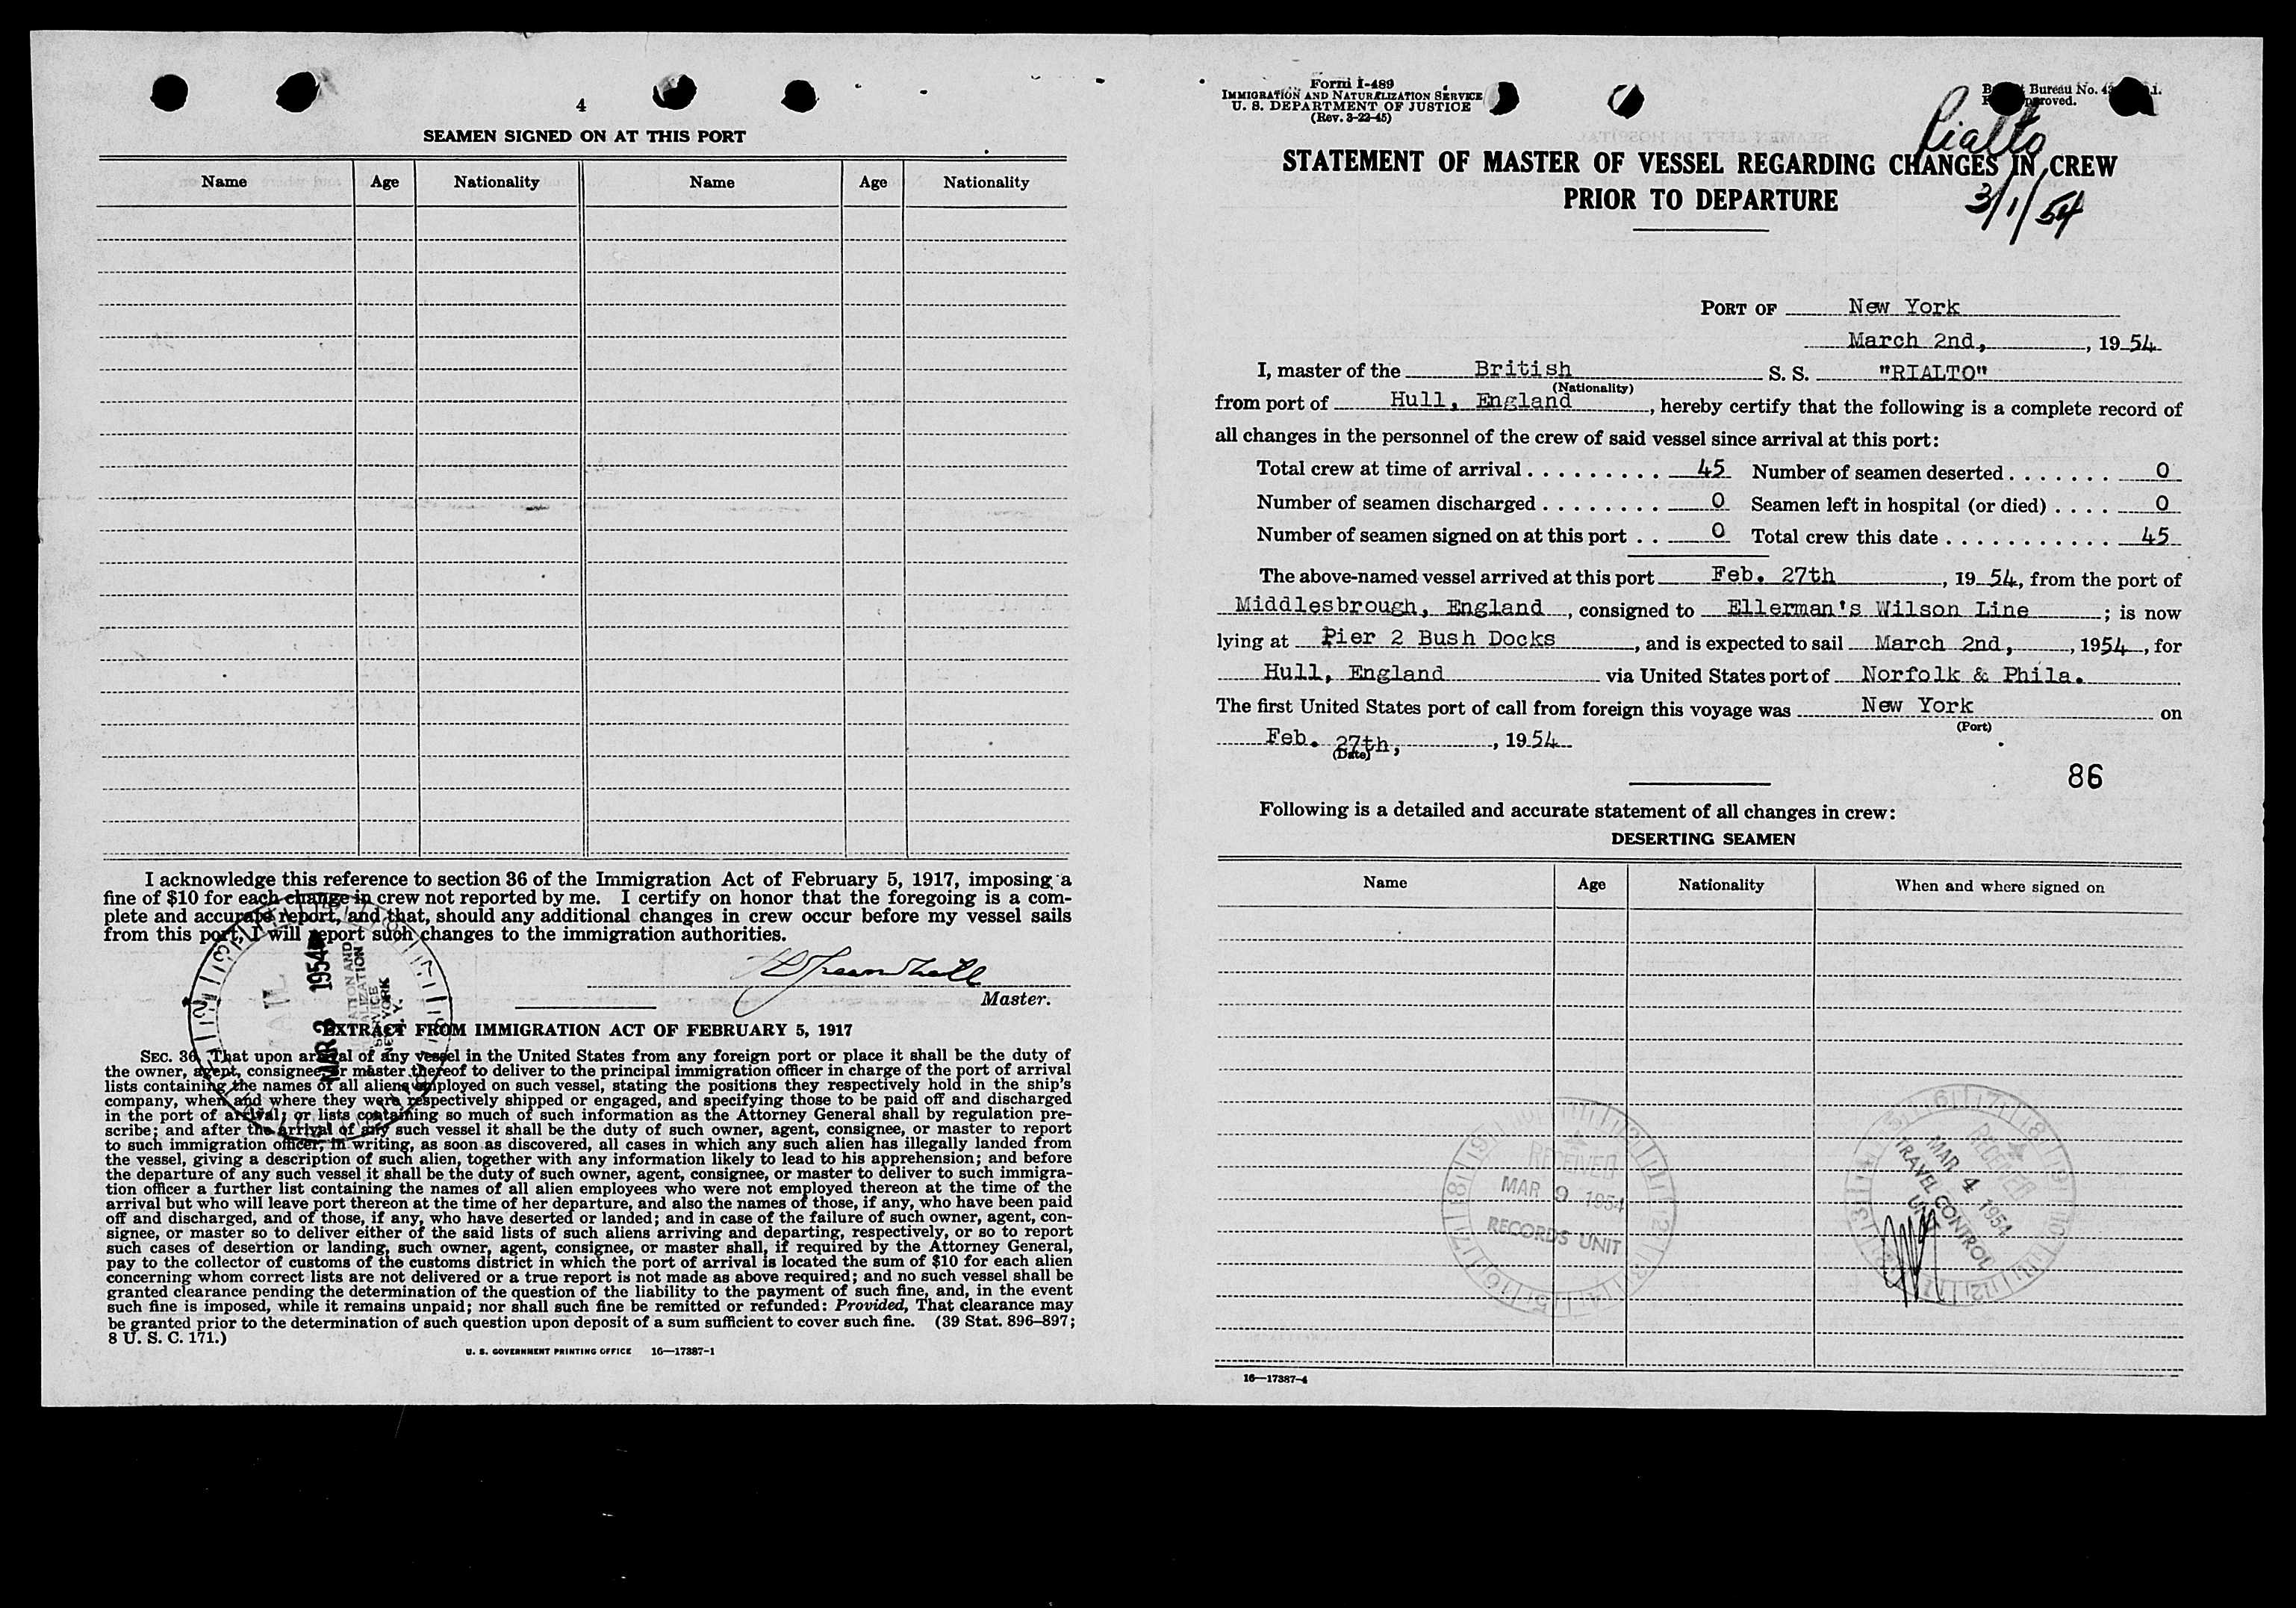 4
SEAMEN SIGNED ON AT THIS PORT
Name Age Nationality Name Age Nationality
I acknowledge this reference to section 36 of the Immigration Act of February 5, 1917, imposing a
fine of $10 for each change in crew not reported by me. I certify on honor that the foregoing is a com-
plete and accurate report, and that, should any additional changes in crew occur before my vessel sails
from this port, I will report such changes to the immigration authorities.
Master.
MAR 3 1954
SERVICE
NEW YORK
N. Y.
EXTRACT FROM IMMIGRATION ACT OF FEBRUARY 5, 1917
SEC. 36. That upon arrival of any vessel in the United States from any foreign port or place it shall be the duty of
the owner, agent, consignee, or master thereof to deliver to the principal immigration officer in charge of the port of arrival
lists containing the names of all aliens employed on such vessel, stating the positions they respectively hold in the ship's
company, when and where they were respectively shipped or engaged, and specifying those to be paid off and discharged
in the port of arrival; or lists containing so much of such information as the Attorney General shall by regulation pre-
scribe; and after the arrival of any such vessel it shall be the duty of such owner, agent, consignee, or master to report
to such immigration officer, in writing, as soon as discovered, all cases in which any such alien has illegally landed from
the vessel, giving a description of such alien, together with any information likely to lead to his apprehension; and before
the departure of any such vessel it shall be the duty of such owner, agent, consignee, or master to deliver to such immigra-
tion officer a further list containing the names of all alien employees who were not employed thereon at the time of the
arrival but who will leave port thereon at the time of her departure, and also the names of those, if any, who have been paid
off and discharged, and of those, if any, who have deserted or landed; and in case of the failure of such owner, agent, con-
signee, or master so to deliver either of the said lists of such aliens arriving and departing, respectively, or so to report
such cases of desertion or landing, such owner, agent, consignee, or master shall, if required by the Attorney General,
pay to the collector of customs of the customs district in which the port of arrival is located the sum of $10 for each alien
concerning whom correct lists are not delivered or a true report is not made as above required; and no such vessel shall be
granted clearance pending the determination of the question of the liability to the payment of such fine, and, in the event
such fine is imposed, while it remains unpaid; nor shall such fine be remitted or refunded: Provided, That clearance may
be granted prior to the determination of such question upon deposit of a sum sufficient to cover such fine. (39 Stat. 896–897;
8 U. S. C. 171.)
U. S. GOVERNMENT PRINTING OFFICE 16—17387-1
Form I-489
IMMIGRATION AND NATURALIZATION SERVICE
U. S. DEPARTMENT OF JUSTICE
(Rev. 3-22-45)
Bureau No.
Rialto
3/1/54
STATEMENT OF MASTER OF VESSEL REGARDING CHANGES IN CREW
PRIOR TO DEPARTURE
PORT OF New York
March 2nd, , 19 54
I, master of the British S. S. "RIALTO"
(Nationality)
from port of Hull, England , hereby certify that the following is a complete record of
all changes in the personnel of the crew of said vessel since arrival at this port:
Total crew at time of arrival 45 Number of seamen deserted 0
Number of seamen discharged 0 Seamen left in hospital (or died) 0
Number of seamen signed on at this port 0 Total crew this date 45
The above-named vessel arrived at this port Feb. 27th , 19 54, from the port of
Middlesbrough, England , consigned to Ellerman's Wilson Line ; is now
lying at Pier 2 Bush Docks , and is expected to sail March 2nd, , 1954, for
Hull, England via United States port of Norfolk & Phila.
The first United States port of call from foreign this voyage was New York on
(Port)
Feb. 27th, , 19 54
(Date)
86
Following is a detailed and accurate statement of all changes in crew:
DESERTING SEAMEN
Name Age Nationality When and where signed on
RECEIVED
MAR 9 1954
RECORDS UNIT
RECEIVED
MAR 4 1954
TRAVEL CONTROL
UNIT
16—17387-4